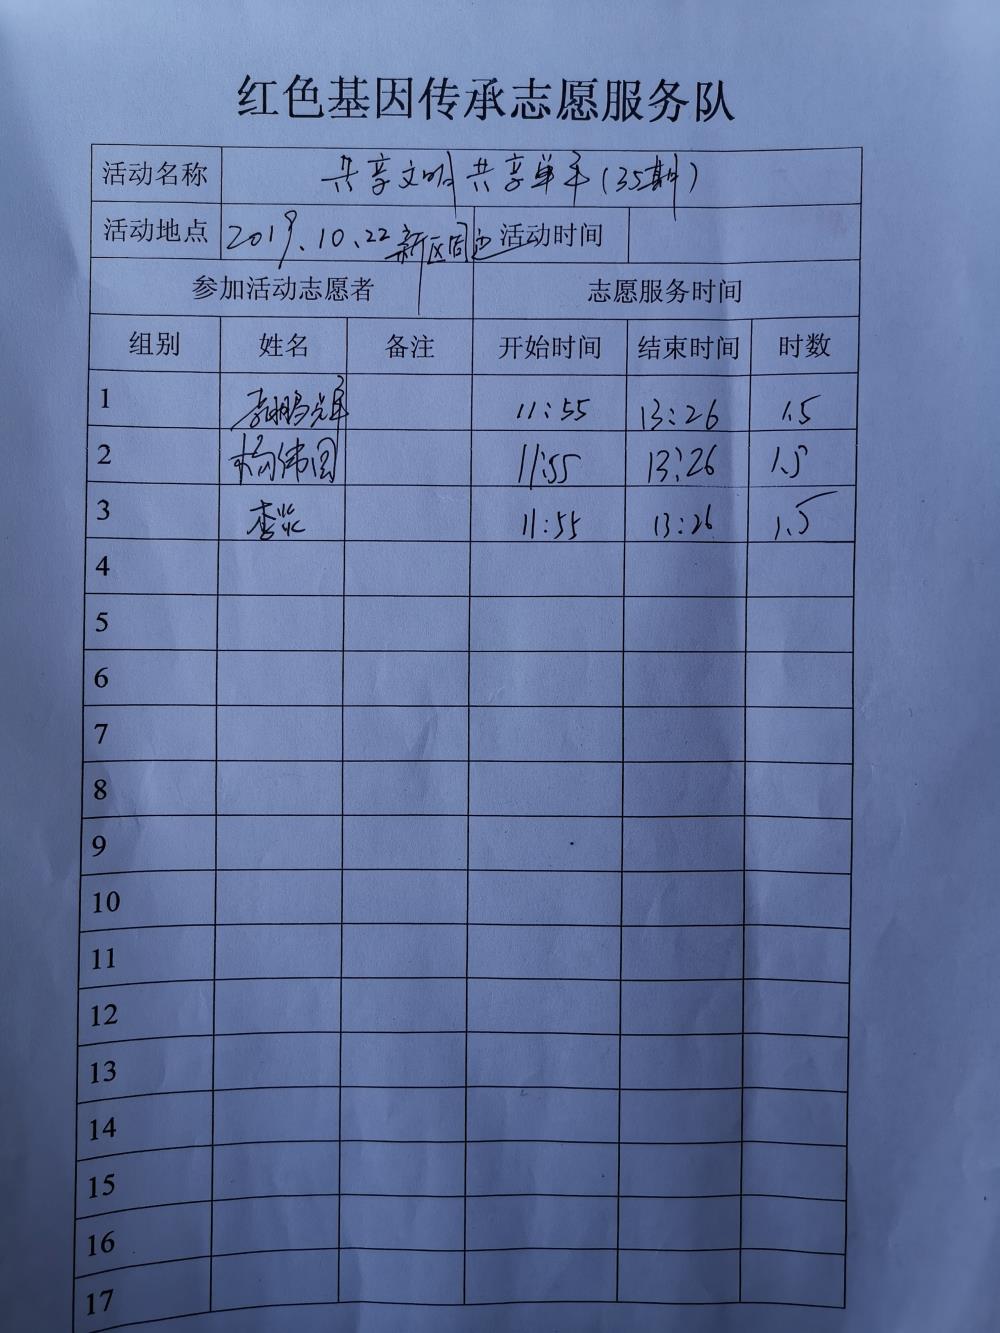 红色基因传承志愿服务队
活动名称 共享文明 共享单车(35期)
活动地点 2019.10.22 新区周边 活动时间
参加活动志愿者 志愿服务时间
组别 姓名 备注 开始时间 结束时间 时数
1 11:55 13:26 1.5
2 杨伟国 11:55 13:26 1.5
3 11:55 13:26 1.5
4
5
6
7
8
9
10
11
12
13
14
15
16
17